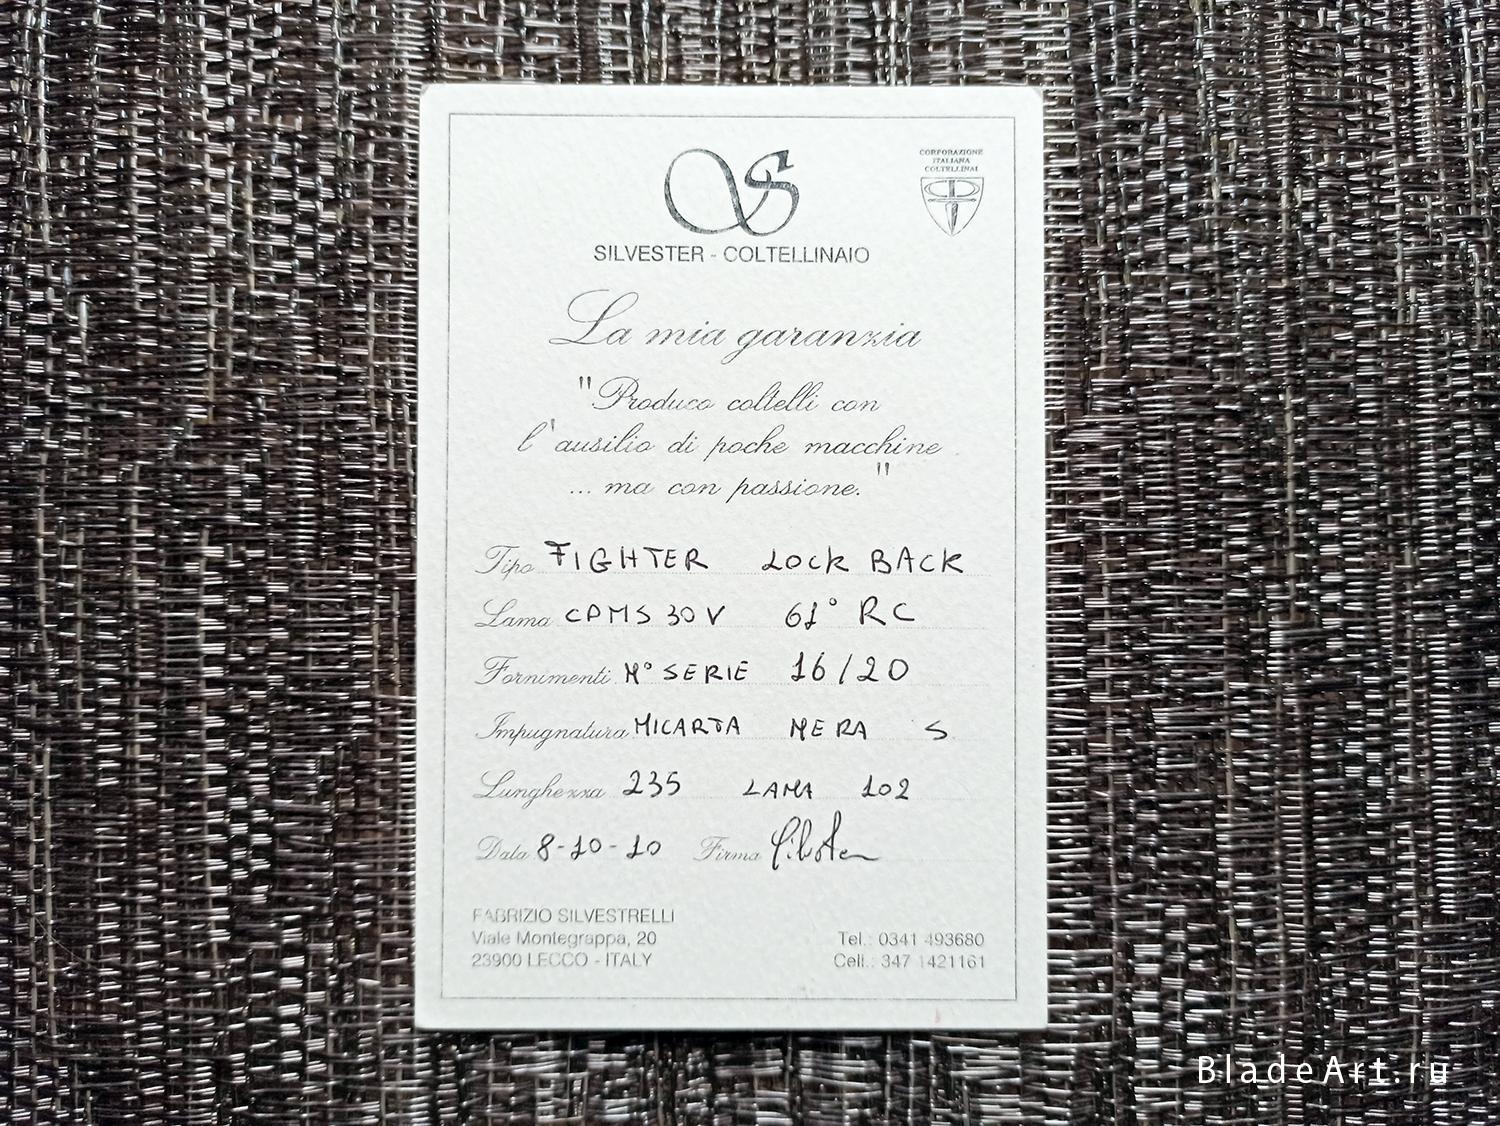 S
CORPORAZIONE
ITALIANA
COLTELLINAI
SILVESTER - COLTELLINAIO
La mia garanzia
"Produco coltelli con
l'ausilio di poche macchine
... ma con passione."
Tipo FIGHTER LOCK BACK
Lama CPMS 30 V 61° RC
Fornimenti N° SERIE 16/20
Impugnatura MICARTA NERA S
Lunghezza 235 LAMA 102
Data 8-10-10 Firma Silvester
FABRIZIO SILVESTRELLI
Viale Montegrappa, 20 Tel.: 0341 493680
23900 LECCO - ITALY Cell.: 347 1421161
BladeArt.ru